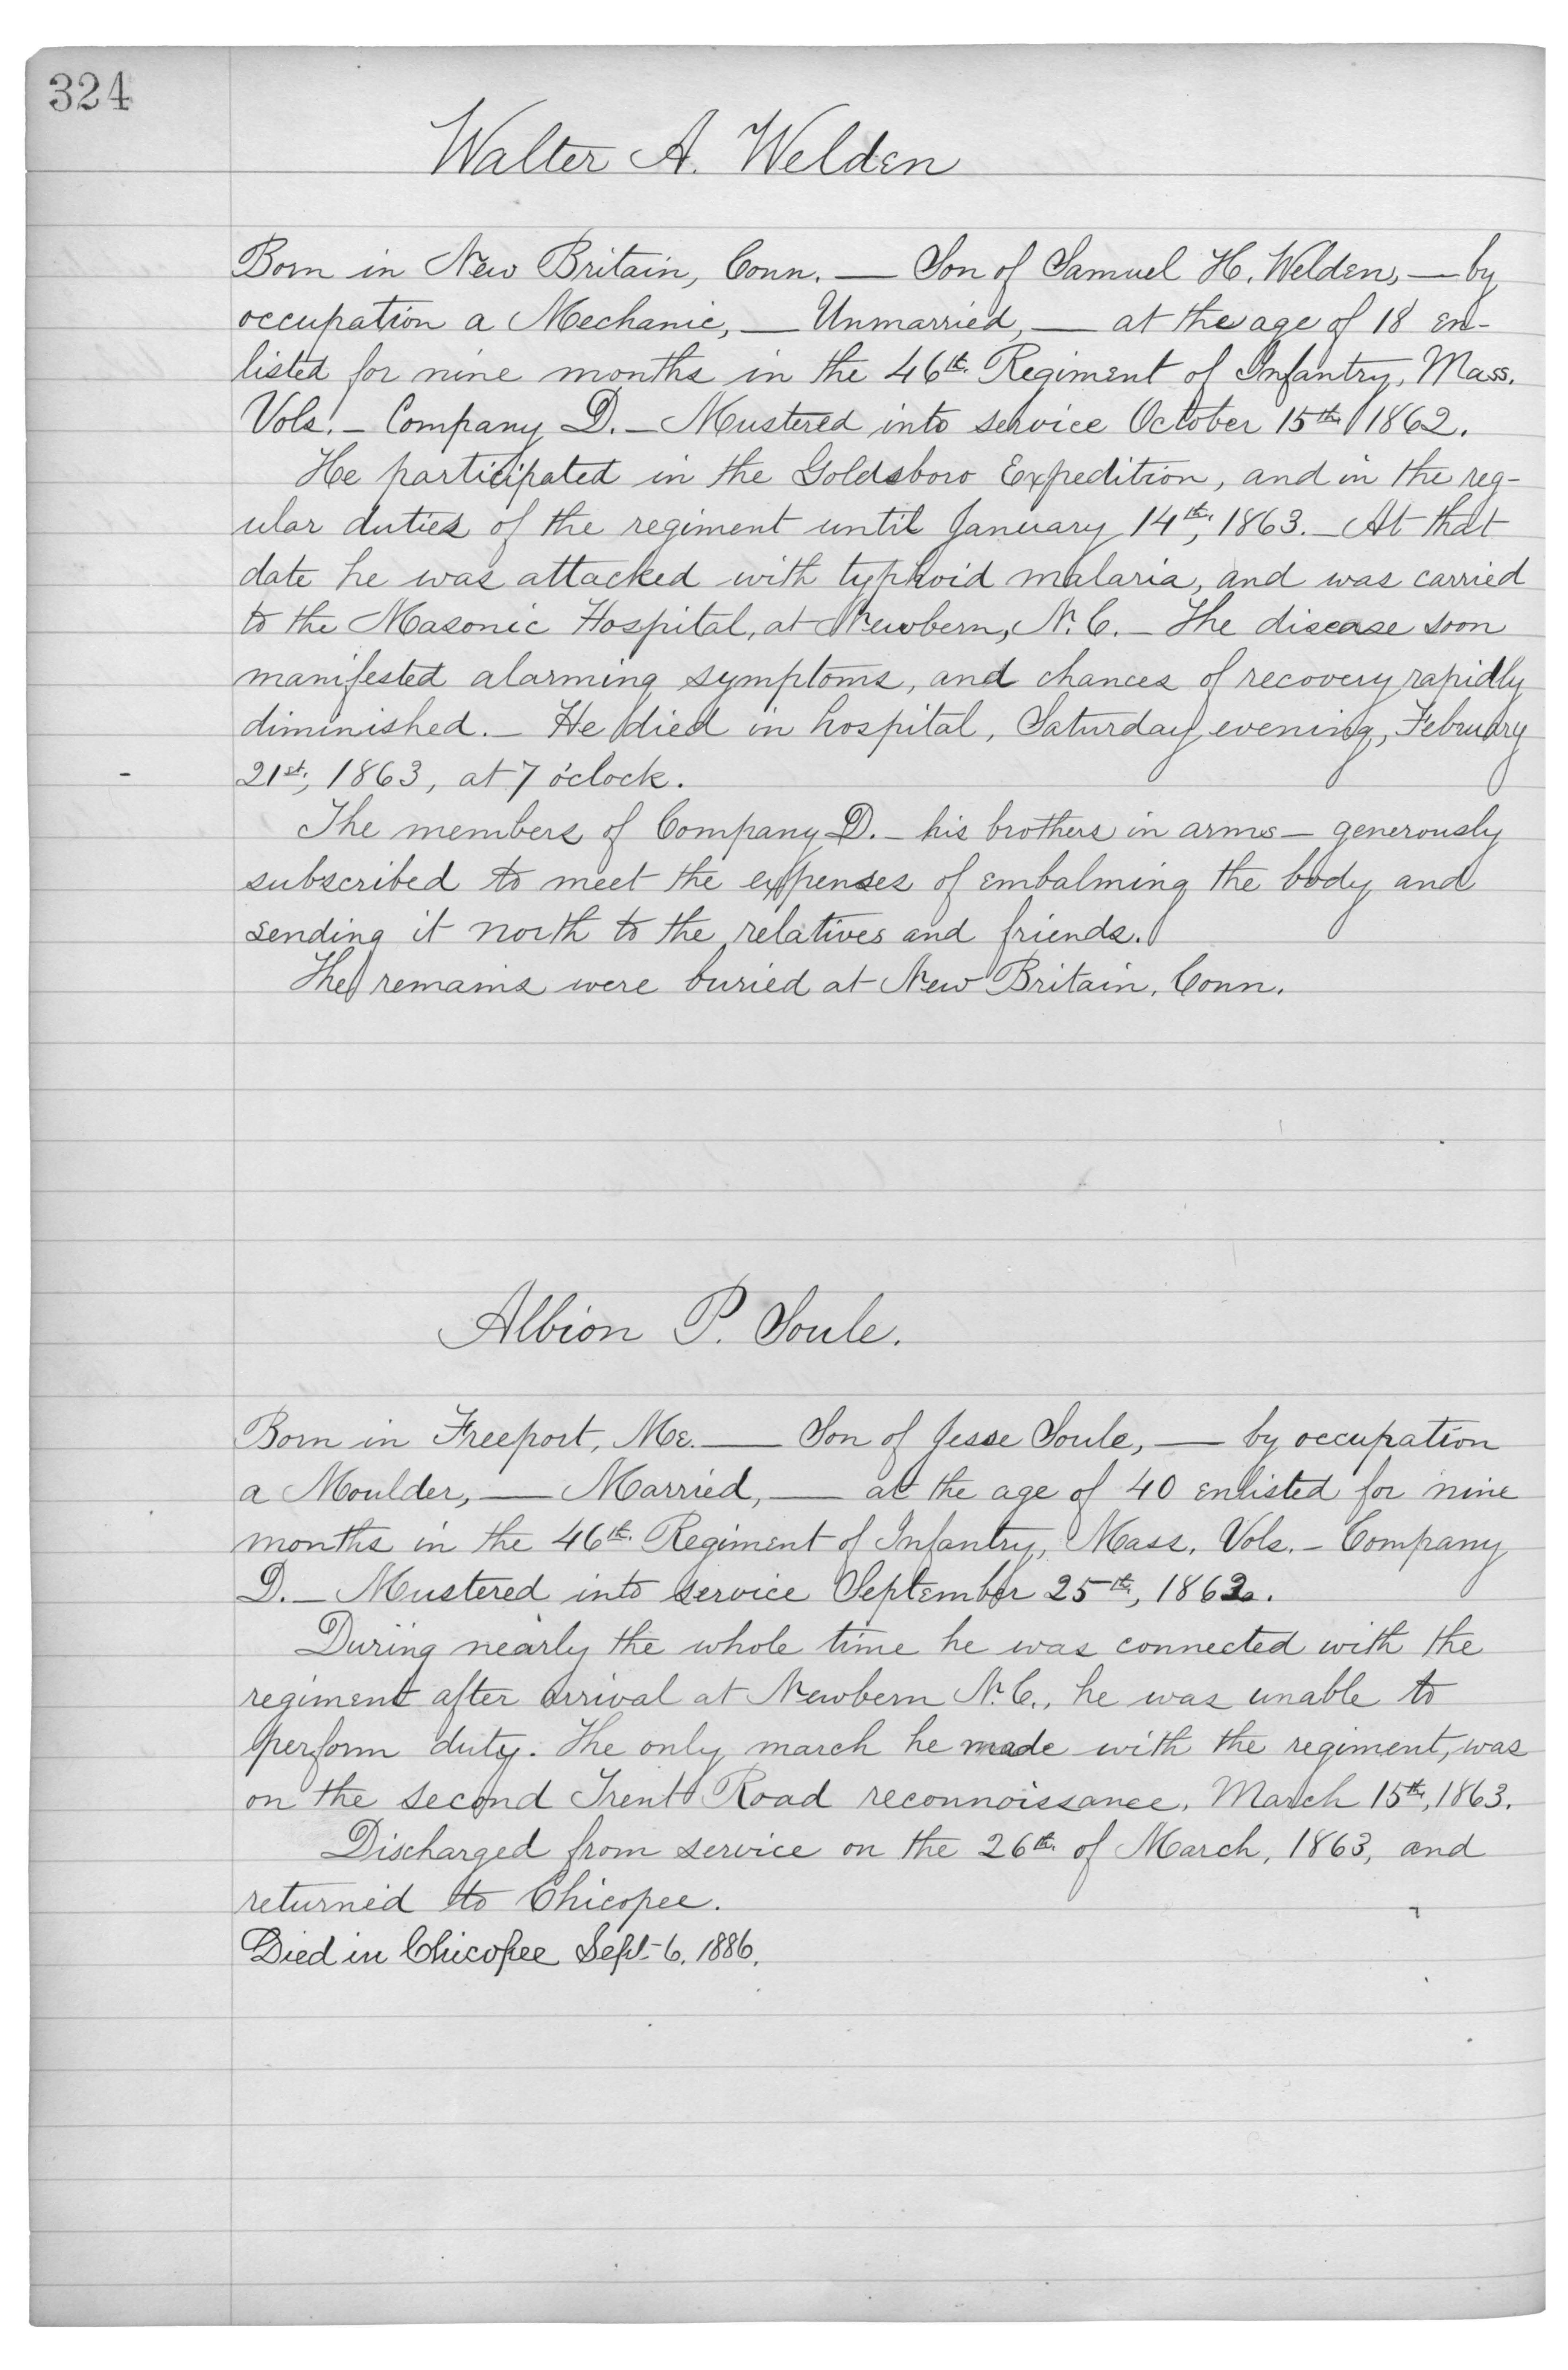 324
Walter A. Welden
Born in New Britain, Conn. — Son of Samuel H. Welden, — by
occupation a Mechanic, — Unmarried, — at the age of 18 en-
listed for nine months in the 46th. Regiment of Infantry, Mass.
Vols. – Company D. – Mustered into service October 15th, 1862.
He participated in the Goldsboro Expedition, and in the reg-
ular duties of the regiment until January 14th, 1863. – At that
date he was attacked with typhoid malaria, and was carried
to the Masonic Hospital, at Newbern, N.C. – The disease soon
manifested alarming symptoms, and chances of recovery rapidly
diminished. – He died in hospital, Saturday evening, February
21st, 1863, at 7 o'clock.
The members of Company D. – his brothers in arms – generously
subscribed to meet the expenses of embalming the body and
sending it north to the relatives and friends.
The remains were buried at New Britain, Conn.
Albion P. Soule.
Born in Freeport, Me. — Son of Jesse Soule, — by occupation
a Moulder, — Married, — at the age of 40 enlisted for nine
months in the 46th. Regiment of Infantry, Mass. Vols. – Company
D. – Mustered into service September 25th, 1862.
During nearly the whole time he was connected with the
regiment after arrival at Newbern N.C., he was unable to
perform duty. The only march he made with the regiment, was
on the second Trent Road reconnoissance, March 15th, 1863.
Discharged from service on the 26th. of March, 1863, and
returned to Chicopee.
Died in Chicopee Sept. 6. 1886.